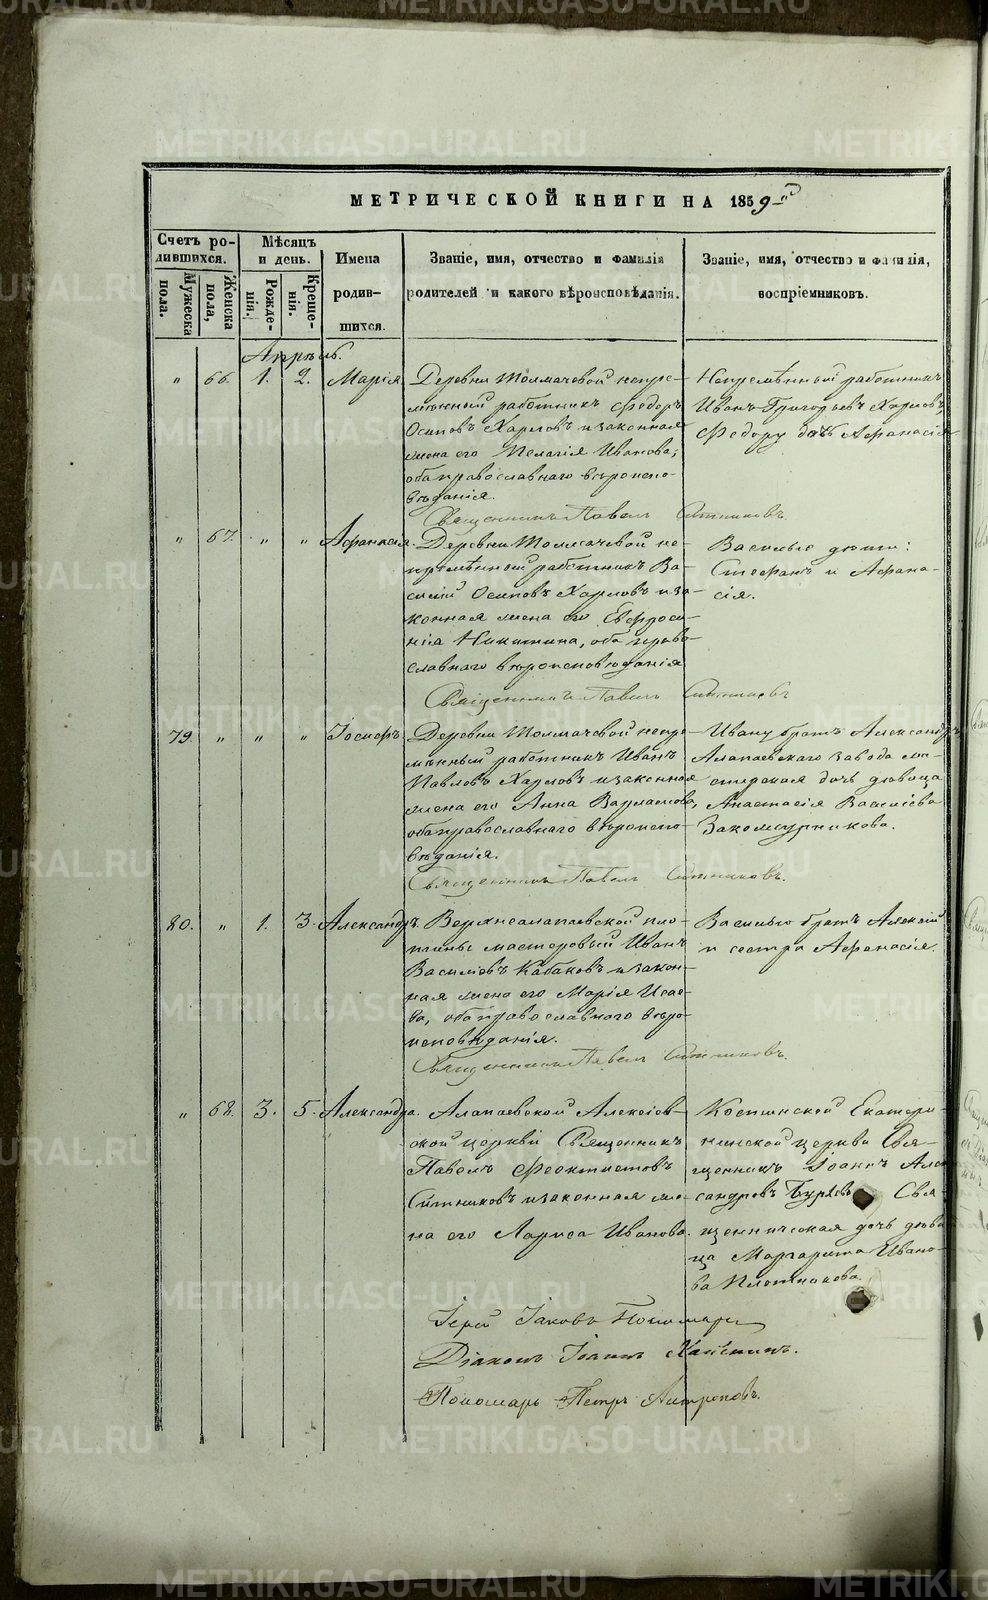 МЕТРИЧЕСКОЙ КНИГИ НА 1859й
Счетъ ро-
дившихся.
Мужеска
пола.
Женска
пола,
Мѣсяцъ
и день.
Рожде-
нія.
Креще-
нія.
Имена
родив-
шихся.
Званіе, имя, отчество и фамилія
родителей и какого вѣроисповѣданія.
Званіе, имя, отчество и фамилія,
воспріемниковъ.
Апрѣль.
" 66. 1. 2. Марія
Деревни Толмачевой непре-
мѣнный работникъ Ѳедоръ
Осиповъ Харловъ и законная
жена его Пелагія Иванова,
оба православнаго вѣроиспо-
вѣданія.
Непремѣнный работникъ
Иванъ Григорьевъ Харловъ,
Ѳедору дочь Афанасія
Священникъ Павелъ Ситниковъ.
" 67. " " Афанасія.
Деревни Толмачевой не-
премѣнный работникъ Ва-
силій Осиповъ Харловъ и за-
конная жена его Евфроси-
нія Никитина, оба право-
славнаго вѣроисповѣданія
Василью дѣти:
Стефанъ и Афана-
сія.
Священникъ Павелъ Ситниковъ
79. " " " Іосифъ
Деревни Толмачевой непре-
мѣнный работникъ Иванъ
Павловъ Харловъ и законная
жена его Анна Варламова,
оба православнаго вѣроиспо-
вѣданія.
Ивану братъ Александръ
Алапаевскаго завода ма-
стерская дочь дѣвица
Анастасія Василіева
Закожурникова.
Священникъ Павелъ Ситниковъ.
80. " 1. 3. Александръ.
Верхнеалапаевской пло-
тины мастеровый Иванъ
Василіевъ Кабаковъ и закон-
ная жена его Марія Исае-
ва, оба православнаго вѣро-
исповѣданія.
Василью братъ Алексій
и сестра Афанасія.
Священникъ Павелъ Ситниковъ.
" 68. 3. 5. Александра.
Алапаевской Алексіев-
ской церкви Священникъ
Павелъ Феоктистовъ
Ситниковъ и законная же-
на его Лариса Иванова.
Костинской Екатери-
нинской церкви Свя-
щенникъ Іоаннъ Алек
сандровъ Свя-
щенническая дочь дѣви
ца Маргарита Ивано-
ва Плотникова.
Іерей Іаковъ Пономарев
Діаконъ Іоаннъ
Пономарь Петръ Антроповъ.
METRIKI.GASO-URAL.RU